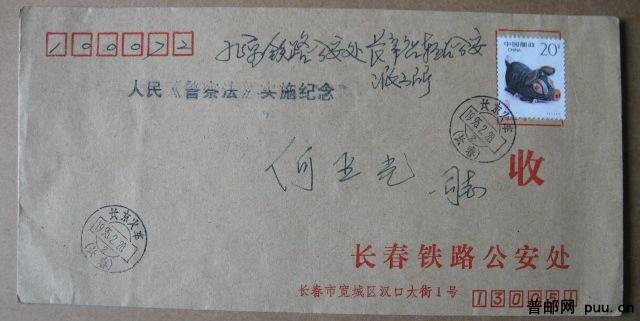 100072
北京铁路公安处长辛店车站公安
派出所
人民《警察法》实施纪念
中国邮政
CHINA
20分
长京火车
1995.2.28
(长春)
何玉光 同志
收
长京火车
1995.2.28
(长春)
长春铁路公安处
长春市宽城区汉口大街1号 130051
普邮网 puu.cn